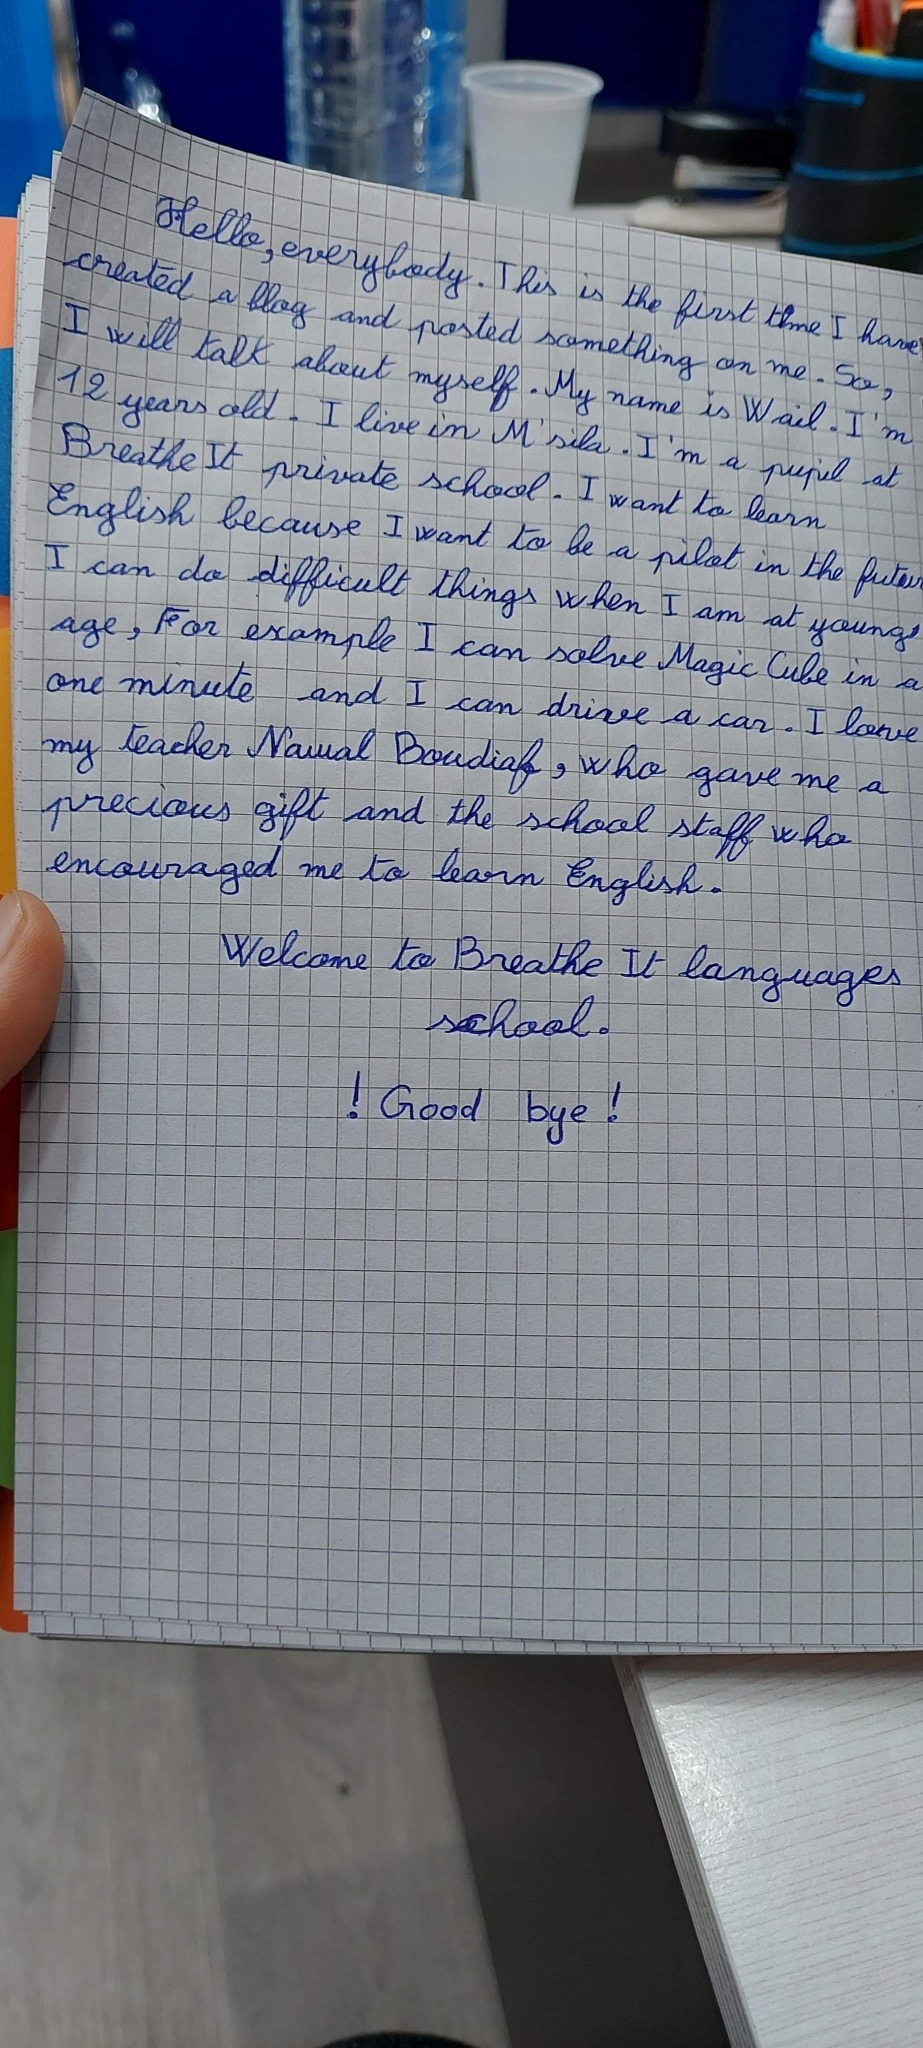 Hello, everybody. This is the first time I have
created a blog and posted something on me. So,
I will talk about myself. My name is Wail. I'm
12 years old. I live in M'sila. I'm a pupil at
Breathe It private school. I want to learn
English because I want to be a pilot in the
I can do difficult things when I am at young
age, For example I can solve Magic Cube in a
one minute and I can drive a car. I love
my teacher Nawal Boudiaf, who gave me a
precious gift and the school staff who
encouraged me to learn English.
Welcome to Breathe It languages
school.
! Good bye !